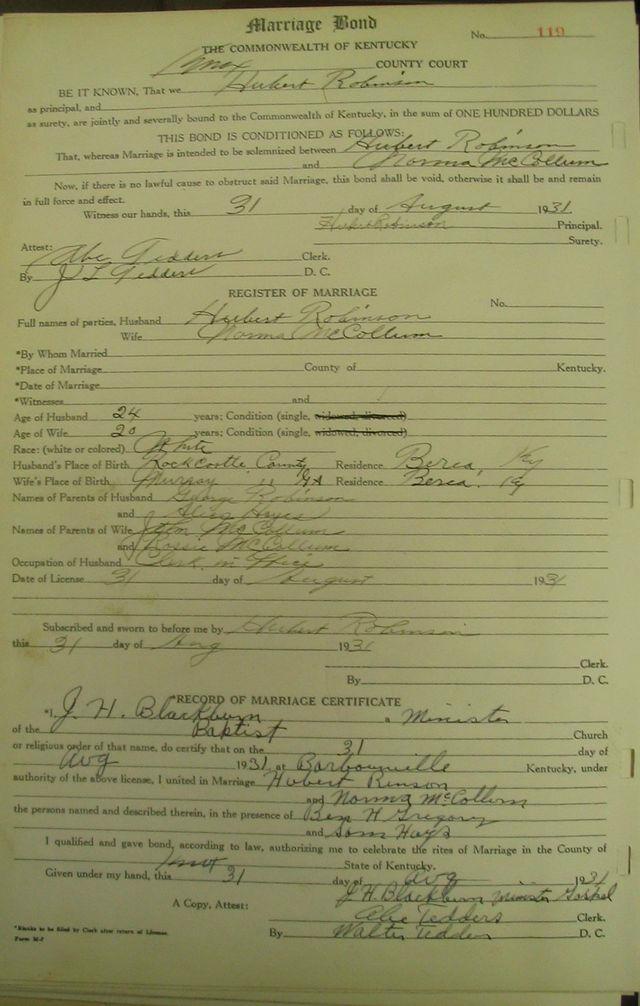 Marriage Bond
No. 119
THE COMMONWEALTH OF KENTUCKY
Knox COUNTY COURT
BE IT KNOWN, That we Hubert Robinson
as principal, and
as surety, are jointly and severally bound to the Commonwealth of Kentucky, in the sum of ONE HUNDRED DOLLARS
THIS BOND IS CONDITIONED AS FOLLOWS:
That, whereas Marriage is intended to be solemnized between Hubert Robinson
and Norma McCollum
Now, if there is no lawful cause to obstruct said Marriage, this bond shall be void, otherwise it shall be and remain
in full force and effect.
Witness our hands, this 31 day of August 1931
Hubert Robinson Principal.
Surety.
Attest:
Abe Tedders Clerk.
By J L Tedders D. C.
REGISTER OF MARRIAGE
No.
Full names of parties, Husband Hubert Robinson
Wife Norma McCollum
*By Whom Married
*Place of Marriage County of Kentucky.
*Date of Marriage
*Witnesses and
Age of Husband 24 years; Condition (single, widowed, divorced)
Age of Wife 20 years; Condition (single, widowed, divorced)
Race: (white or colored) White
Husband's Place of Birth Rockcastle County Residence Berea, Ky
Wife's Place of Birth Murray " Residence Berea, Ky
Names of Parents of Husband George Robinson
and Alice Hayes
Names of Parents of Wife John McCollum
and McCollum
Occupation of Husband Clerk in
Date of License 31 day of August 1931
Subscribed and sworn to before me by Hubert Robinson
this 31 day of Aug 1931
Clerk.
By D. C.
*RECORD OF MARRIAGE CERTIFICATE
*I, J. H. Blackburn a Minister
of the Baptist Church
or religious order of that name, do certify that on the 31 day of
Aug 1931 at Barbourville Kentucky, under
authority of the above license, I united in Marriage Hubert
and Norma McCollum
the persons named and described therein, in the presence of Ben H Gregory
and Sam Hays
I qualified and gave bond, according to law, authorizing me to celebrate the rites of Marriage in the County of
Knox State of Kentucky.
Given under my hand, this 31 day of Aug 1931
J. H. Blackburn Minister Gospel
A Copy, Attest: Abe Tedders Clerk.
By Walter Tedders D. C.
*Blanks to be filled by Clerk after return of License.
Form M-7